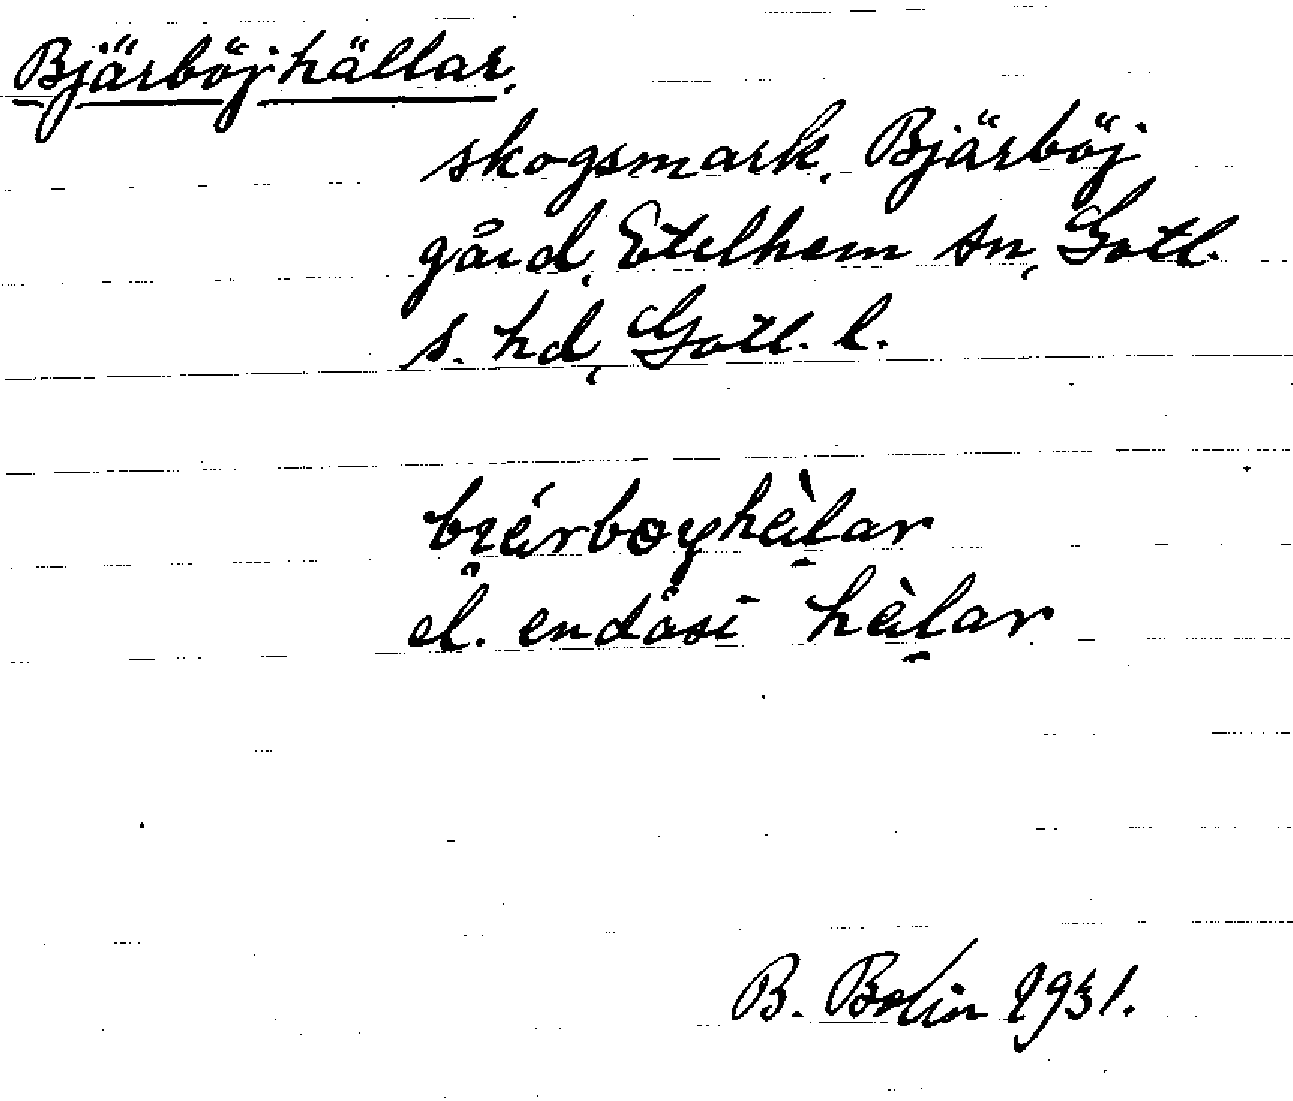 Bjärböjhällar,
skogsmark, Bjärböj
gård, Etelhem sn, Gotl.
s. hd, Gotl. l.
bi̯érbøyhèlar
el. endåsi hèlar
B. Bolin 1931.